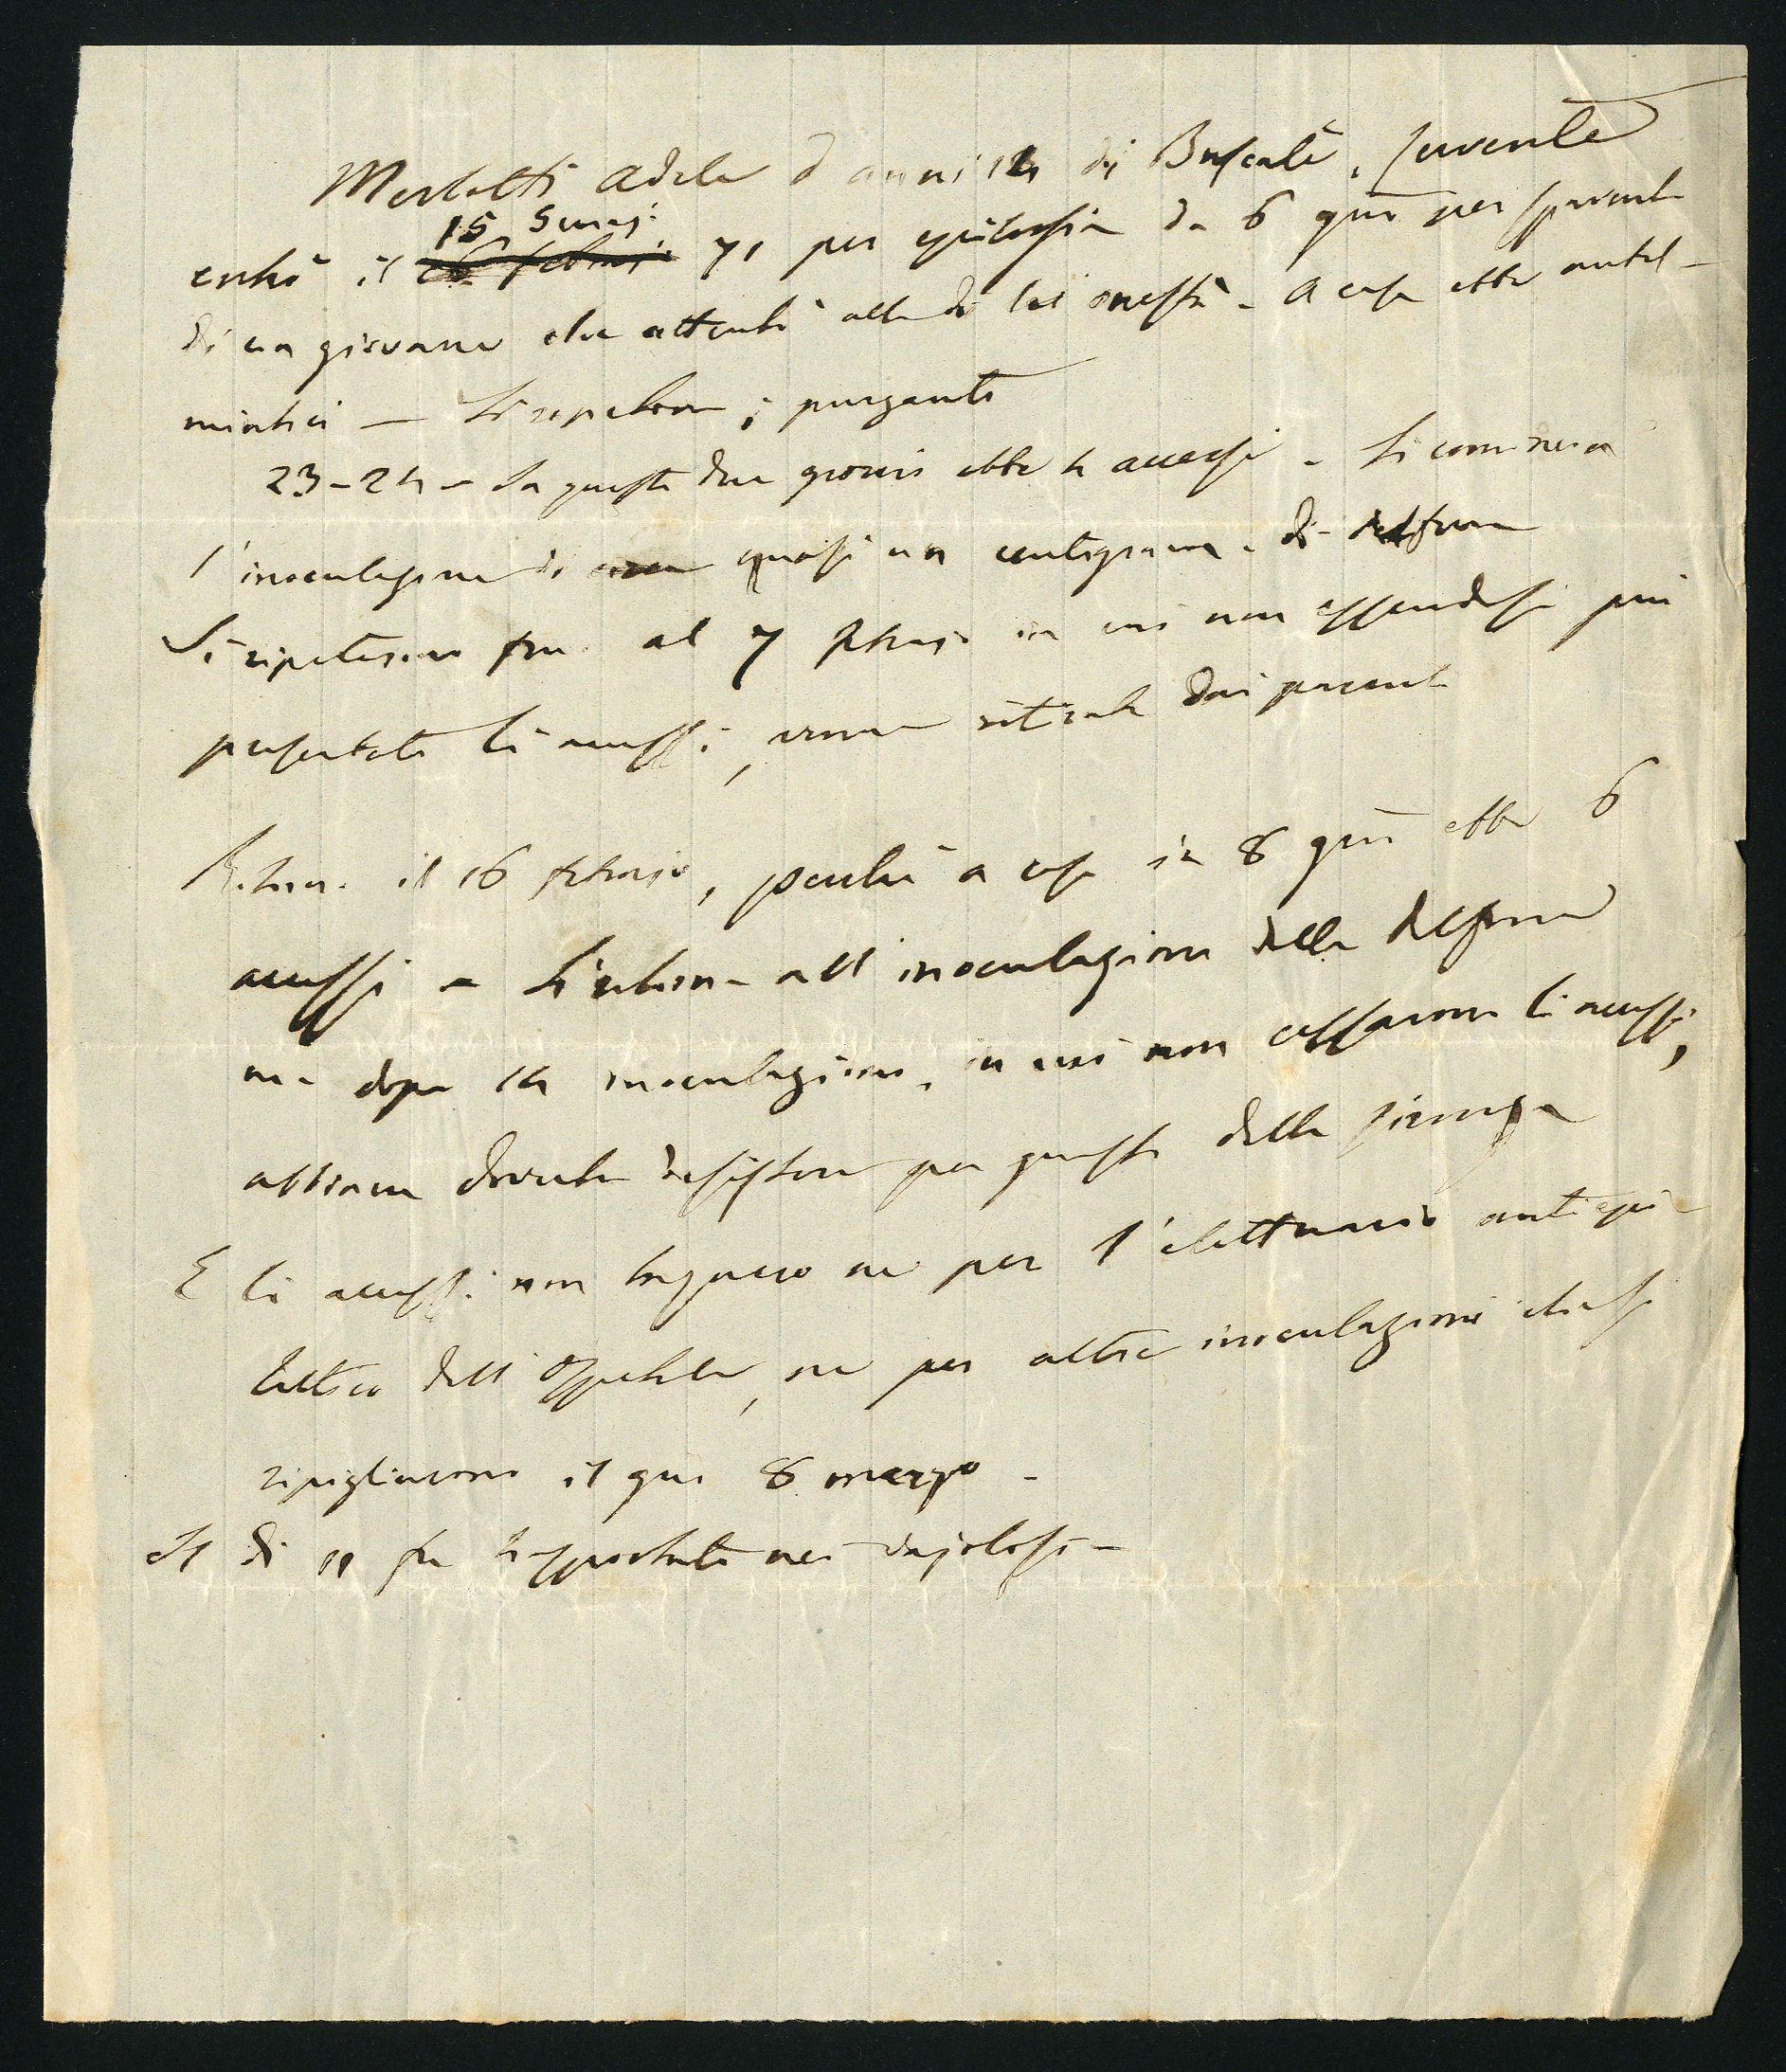 Merlotti Adele d'anni 14 di Buscate, servente
15 Genajo
entrò il 71 per epilessia da 6 gni per spavento
di un giovane che attentò alla di lei onestà - A casa ebbe antel-
mintici - Si ripetono i purganti
23-24 - In questi due giorni ebbe 4 accessi - Si comincia
l'inoculazione di quasi un centigram. di
Si ripetesino fin al 7 febrajo in cui non essendosi più
presentati li accessi, venne ritirata dai parenti
Ritorna il 16 febrajo, perchè a casa in 8 gni ebbe 6
accessi - Si ritorna all'inoculazione della
ma dopo 14 inoculazioni, in cui non cessarono li accessi,
abbiamo dovuto desistere per guasto della siringa
E li accessi non tacquero ne per l'elettuario antiepi-
lettico dell'Ospitale, ne per altre inoculazioni che si
ripigliarono il gno 8 marzo -
Il dì 11 fu trasportata nei vajolosi -